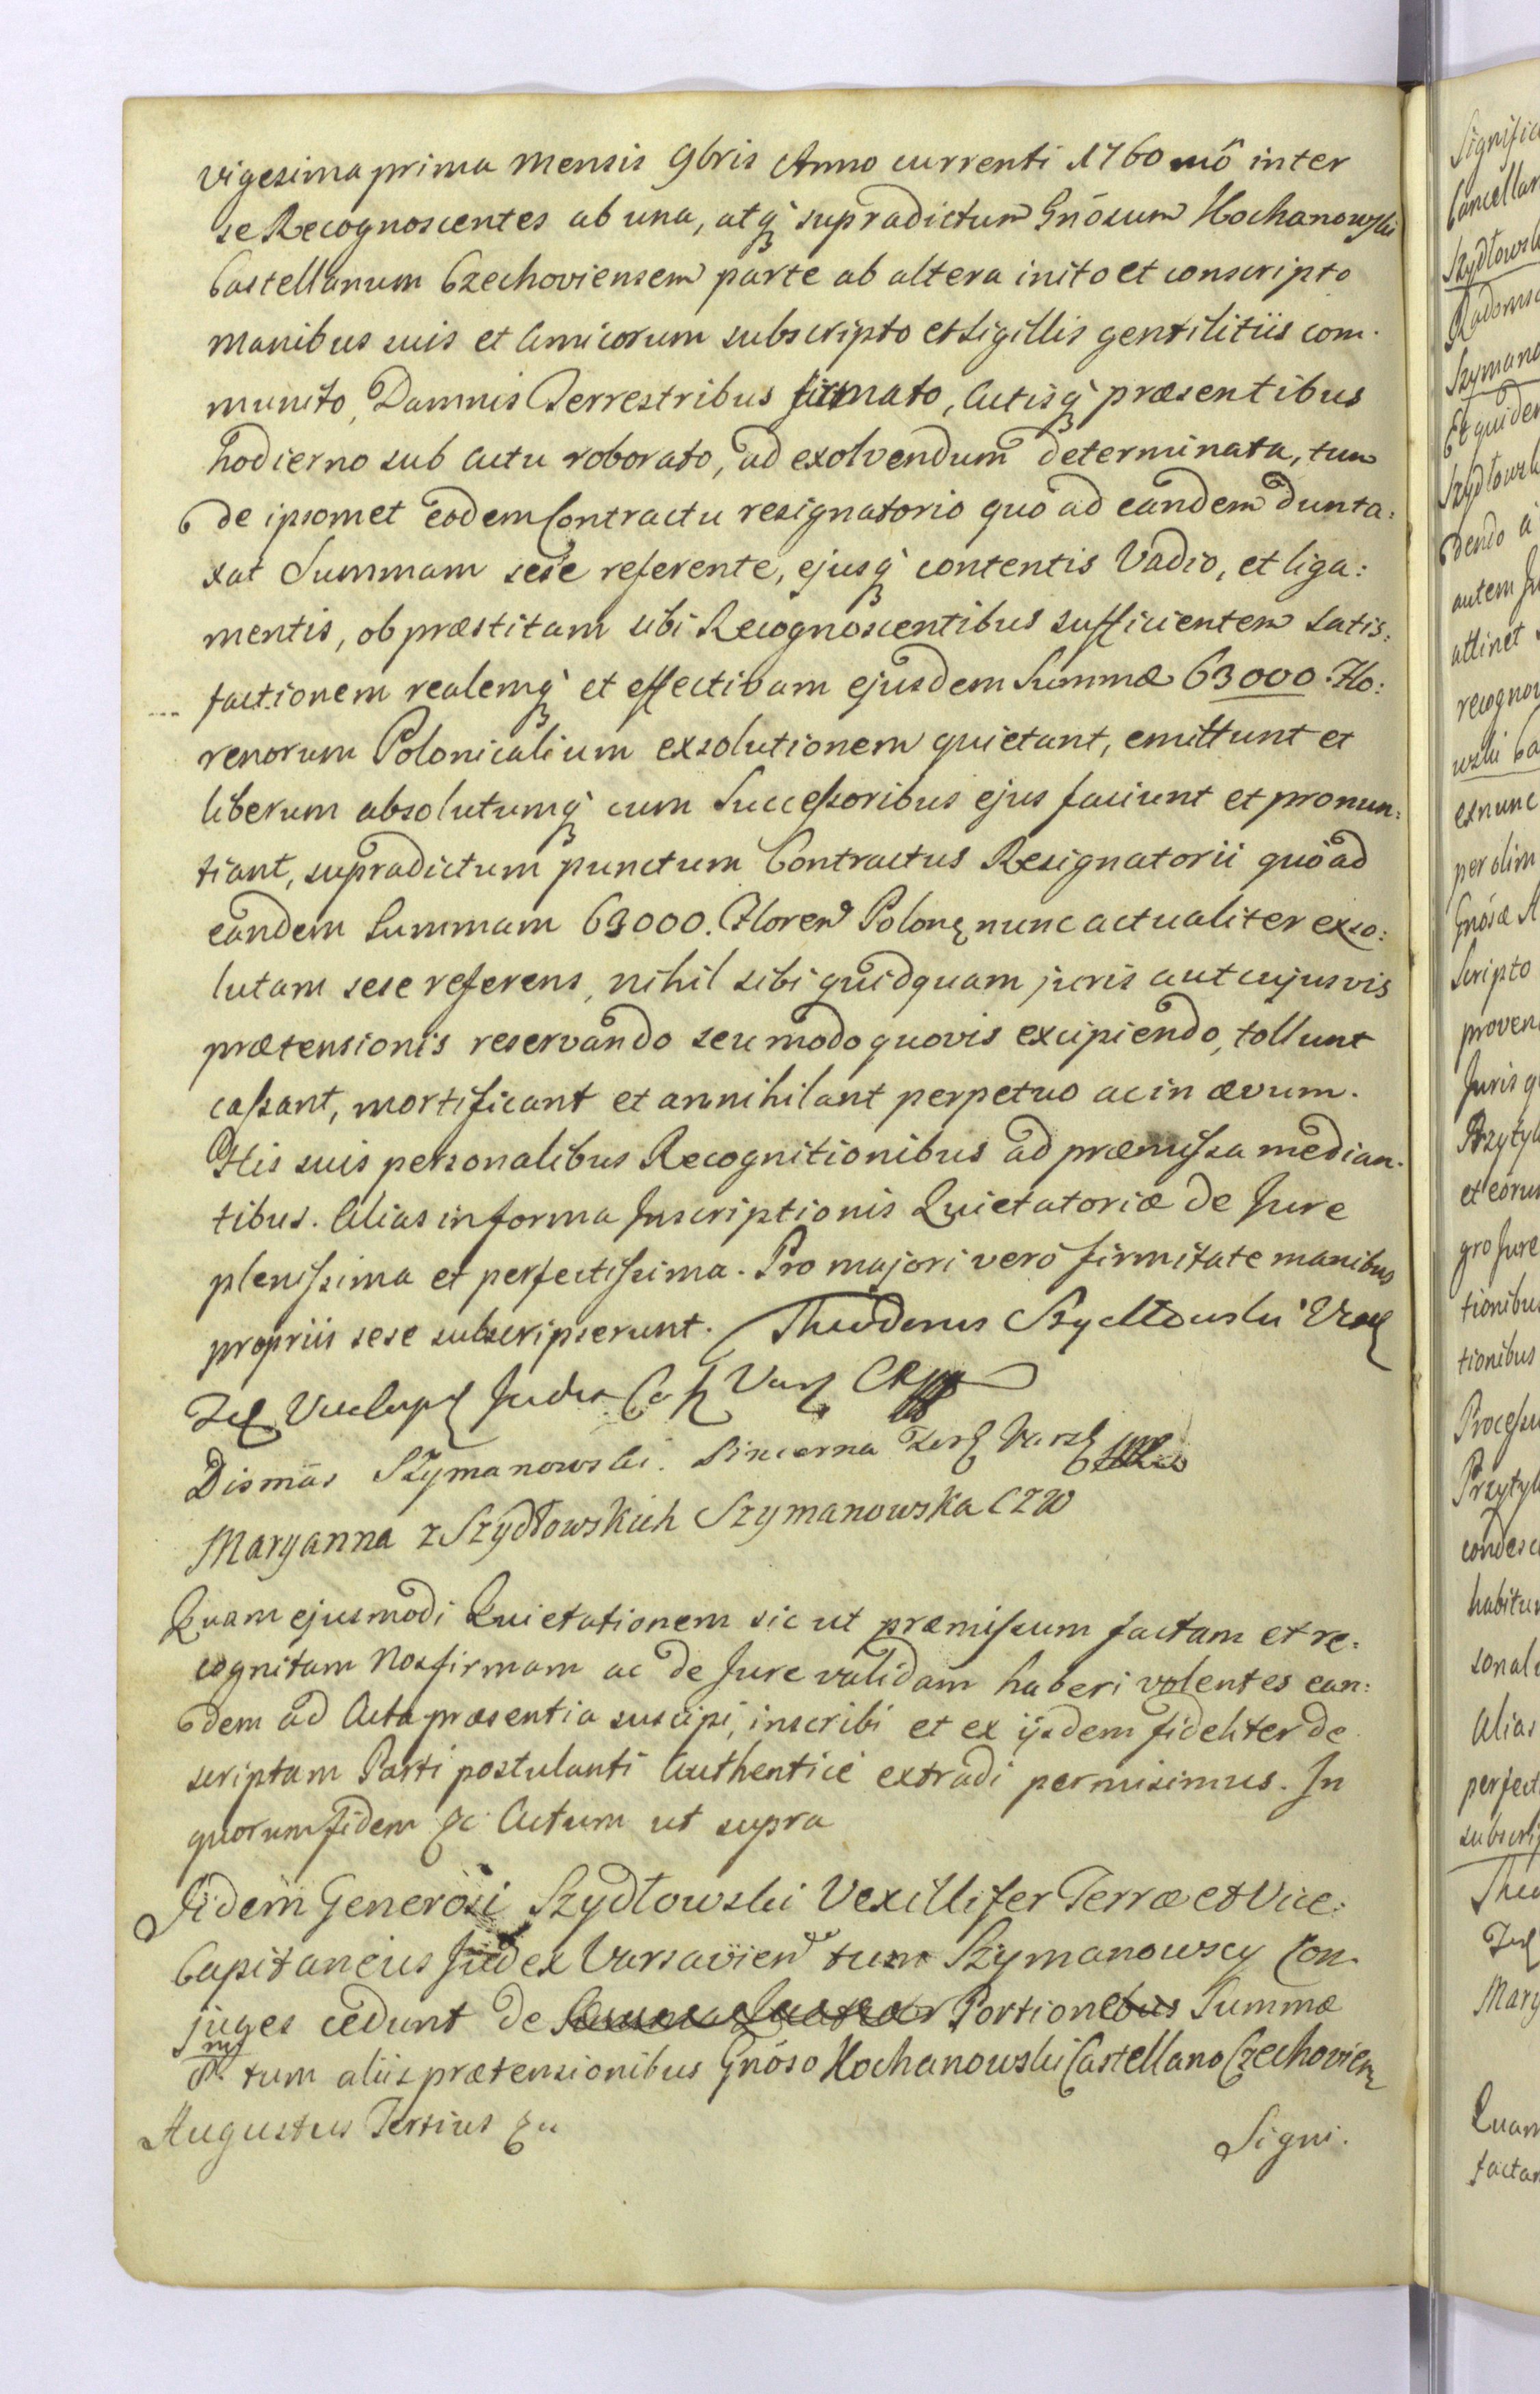 vigesima prima mensis 9bris Anno currenti 1760 mô inter
se Recognoscentes ab una, atq₃ supradictum Gnôsum Kochanowski
Castellanum Czechoviensem parte ab altera inito et conscripto
manibus suis et Amicorum subscripto et Sigillis gentilitiis com-
munito, Damnis Terrestribus firmato, Actisq₃ præsentibus
hodierno sub actu roborato, ad exolvendum determinata, tum
de ipsomet eodem Contractu resignatorio quo ad eandem dunta:
xat Summam sese referente, ejusq₃ contentis Vadio, et liga:
mentis, ob præstitam sibi Recognoscentibus sufficientem satis:
factionem realemq₃ et effectivam ejusdem Summæ 63000 Flo:
renorum Polonicalium exsolutionem quietant, emittunt et
liberum absolutumq₃ cum Successoribus ejus faciunt et pronun:
tiant, supradictum punctum Contractus Resignatorii quo ad
eandem Summam 63000. Floren Polon nunc actualiter exso:
lutam sese referens, nihil sibi quidquam juris aut cujusvis
prætensionis reservando seu modo quovis excipiendo, tollunt
cassant, mortificant et annihilant perpetuo ac in ævum.
His suis personalibus Recognitionibus ad præmissa median-
tibus. Alias in forma Inscriptionis Quietatoriæ de Jure
plenissima et perfectissima. Pro majori vero firmitate manibus
propriis sese subscripserunt. Theodorus Szydłowski Vex
Ter Vicecap Judex Vars
Dismas Szymanowski. Pincerna Ter Varsz
Maryanna z Szydłowskich Szymanowska CZW
Quam ejusmodi Quietationem sic ut præmissum factam et re:
cognitam Nos firmam ac de Jure validam haberi volentes ean:
dem ad Acta præsentia suscipi, inscribi et ex ijsdem fideliter de
scriptam Parti postulanti Authentice extradi permisimus. In
quorum fidem &c Actum ut supra
Iidem Generosi Szydłowski Vexillifer Terræ et Vice:
Capitaneus Judex Varsavien tum Szymanowscy Con-
juges cedunt de Portionebus Summæ
tum aliis prætensionibus Gnôso Kochanowski Castellano Czechovien
Augustus Tertius &c
Signi.
Signific
Cancellar
Szydłowsk
Radomsc
Szymano
Et quidem
Szydłowsk
dendo a
autem Ju
attinet
recognov
wski Ca
exnunc
per olim
Gnôsæ
Scripto
proven
Juris q
Przytyk
et eorum
gro Jure
tionibus
tionibus
Processu
Przytyk
condesc
habitum
sonale
Alias
perfect
subscrip
Theo
Ter
Mary
Quam
factam